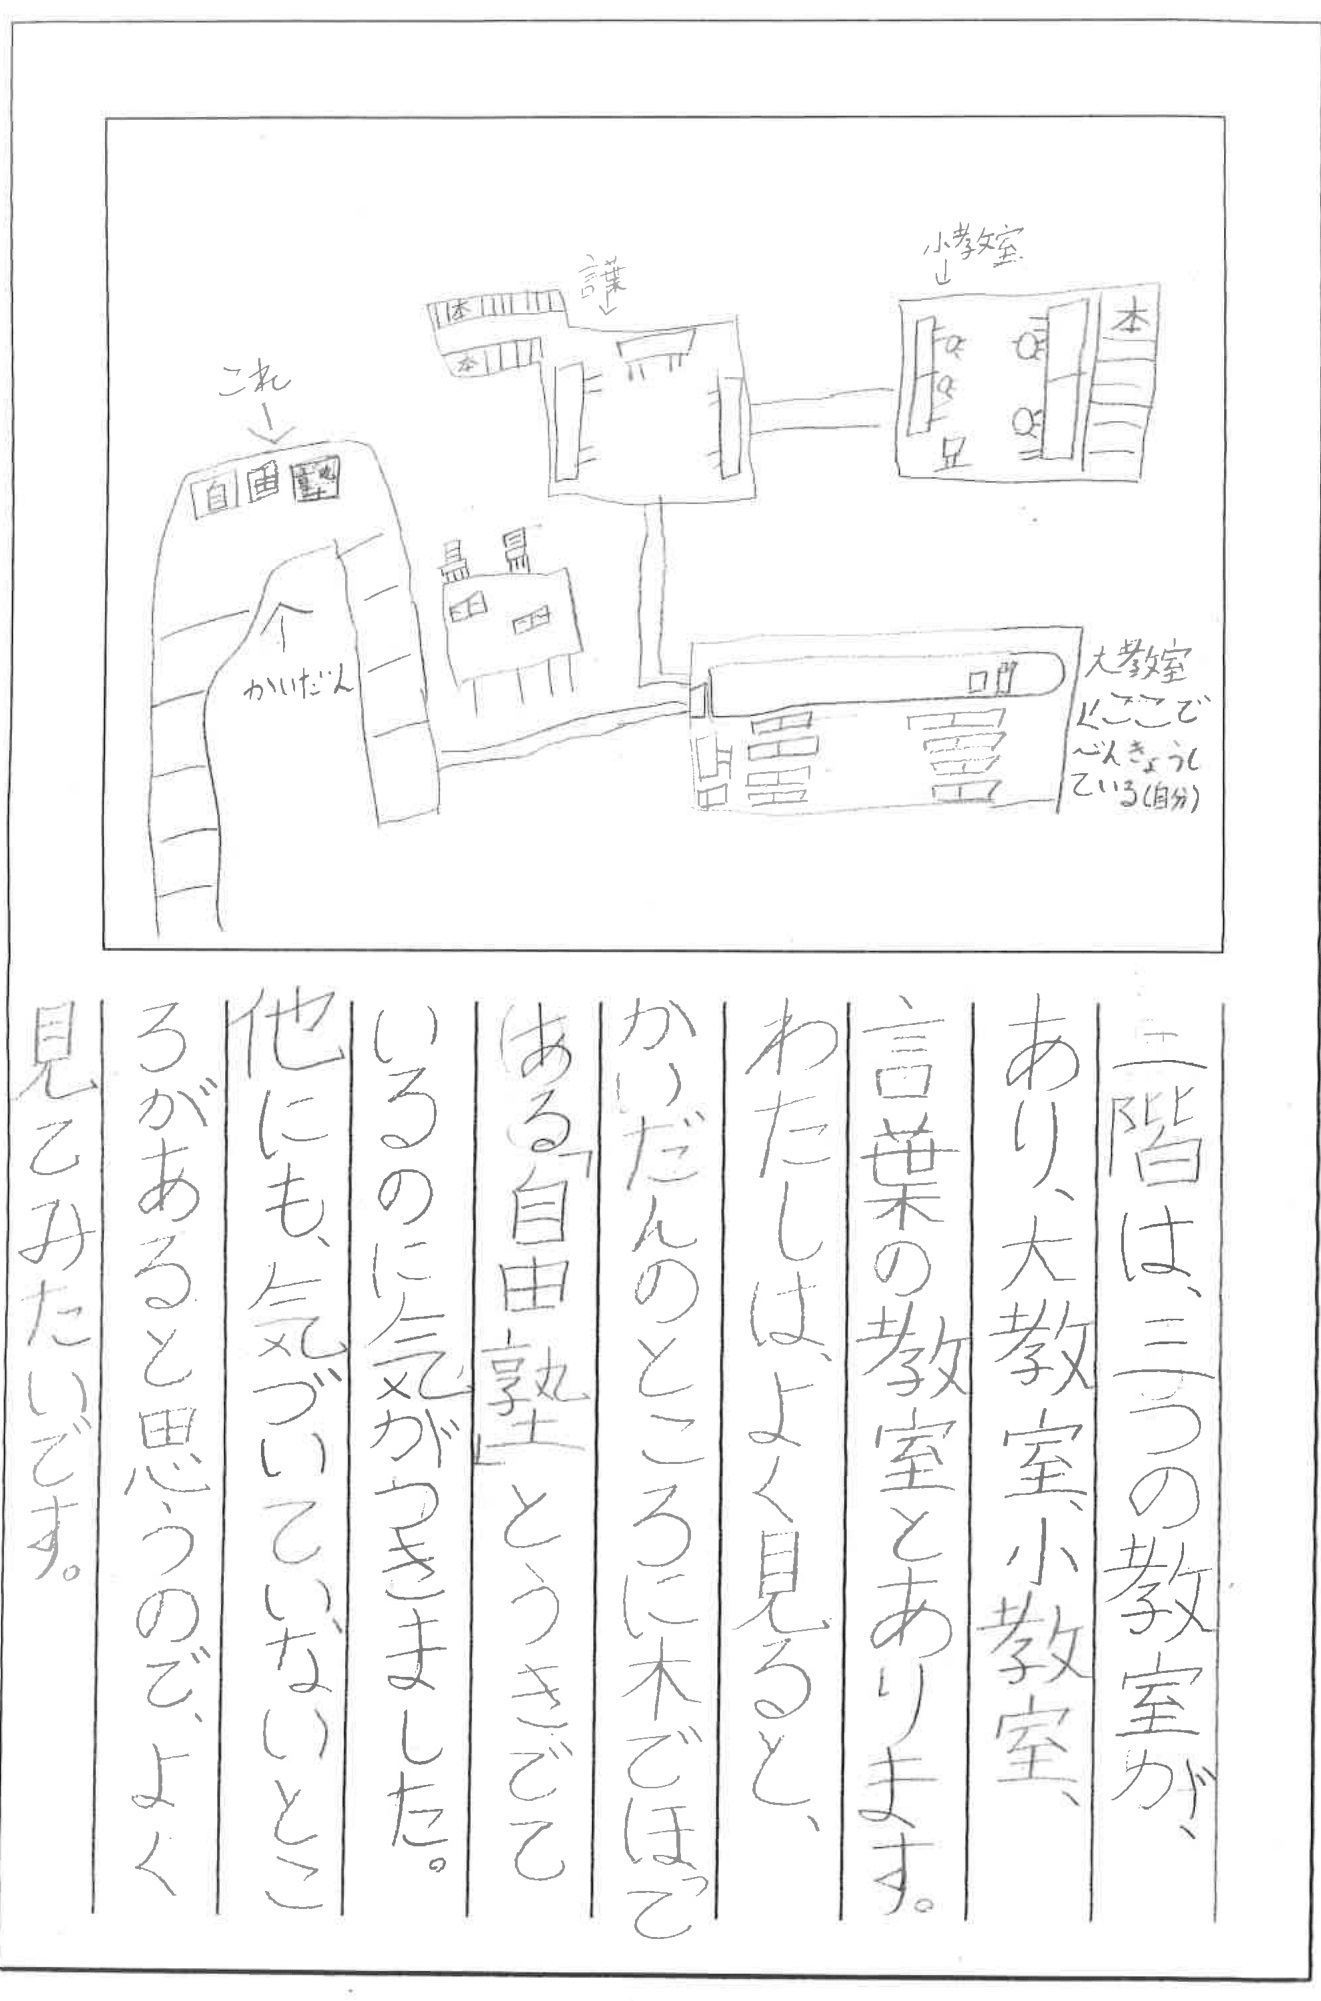 小教室
本
言葉
本
本
これ
自由塾
かいだん
大教室
ここで
べんきょうし
ている(自分)
二階は、三つの教室が、
あり、大教室、小教室、
言葉の教室とあります。
わたしは、よく見ると、
かいだんのところに木でほって
ある「自由塾」とうきでて
いるのに気がつきました。
他にも、気づいていないとこ
ろがあると思うので、よく
見てみたいです。